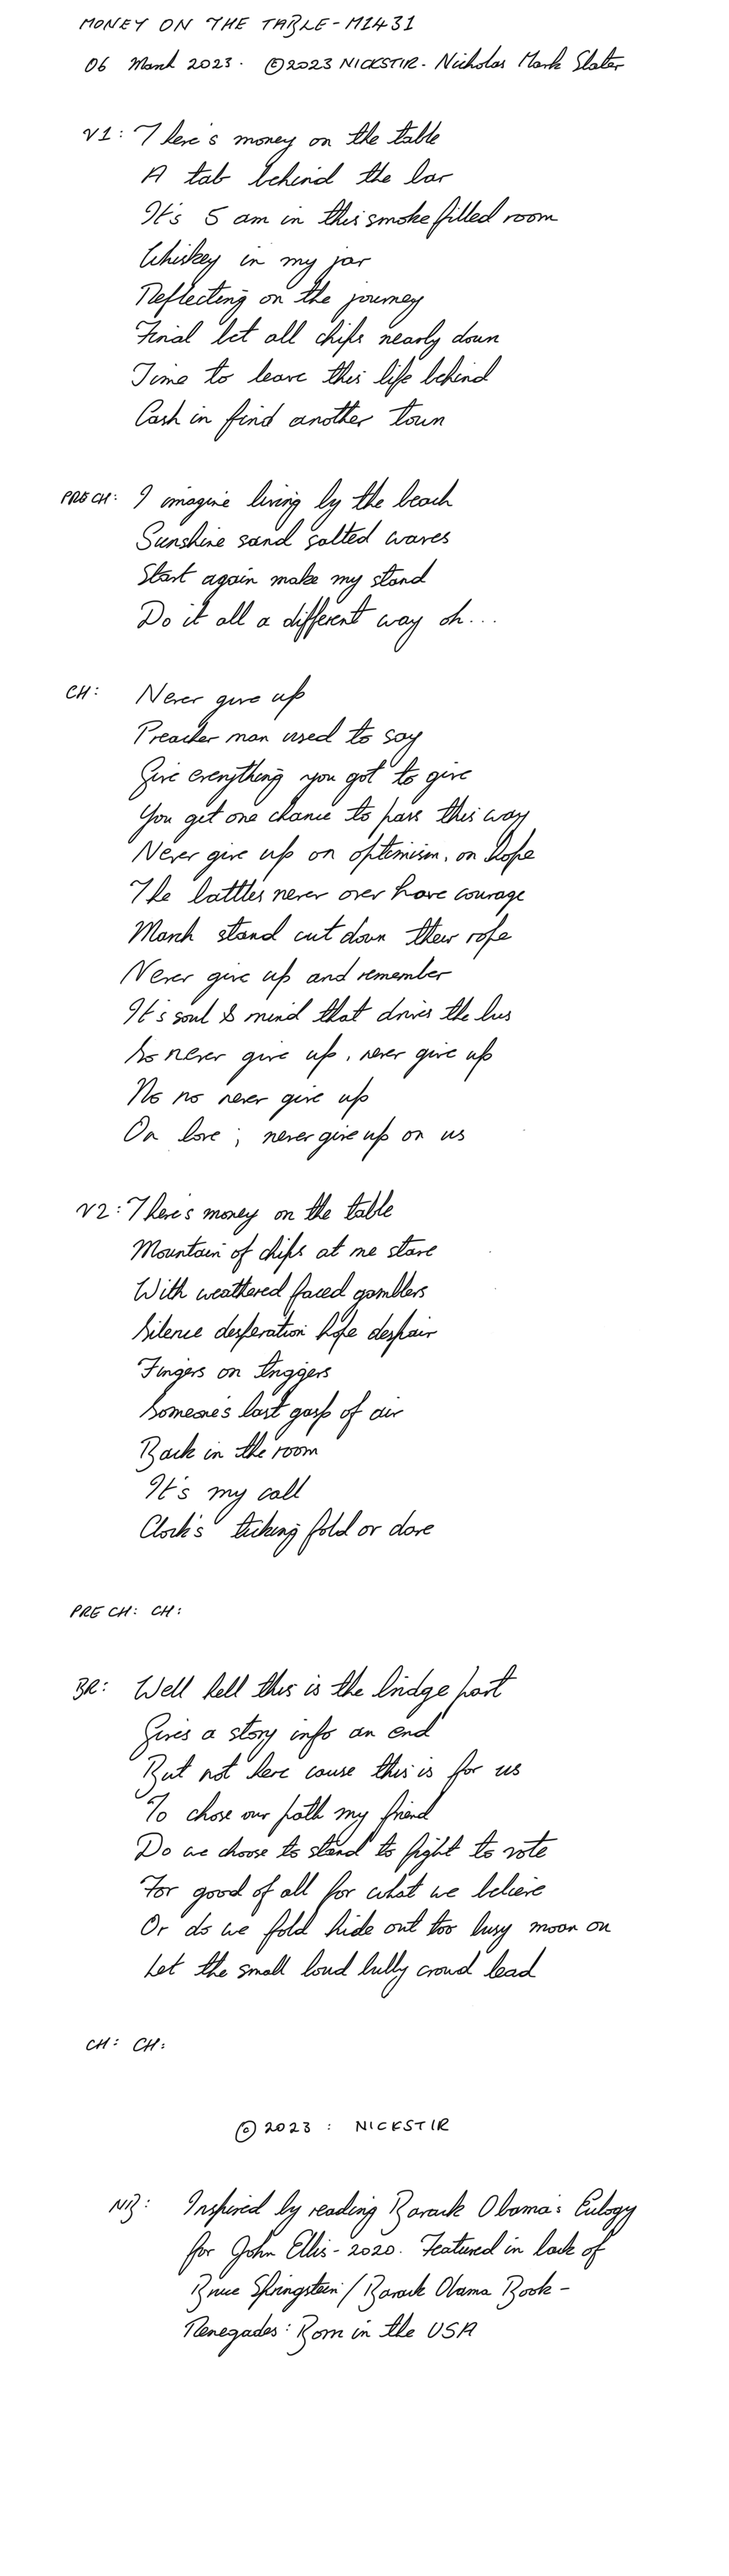 MONEY ON THE TABLE - M1431
06 March 2023. ©2023 NICKSTIR - Nicholas Mark Slater
V1: There's money on the table
A tab behind the bar
It's 5 am in this smoke filled room
Whiskey in my jar
Reflecting on the journey
Final bet all chips nearly down
Time to leave this life behind
Cash in find another town
PRE CH: I imagine living by the beach
Sunshine sand salted waves
Start again make my stand
Do it all a different way oh...
CH: Never give up
Preacher man used to say
Give everything you got to give
You get one chance to pass this way
Never give up on optimism, on hope
The battles never over have courage
March stand cut down their rope
Never give up and remember
It's soul & mind that drives the bus
So never give up, never give up
No no never give up
On love ; never give up on us
V2: There's money on the table
Mountain of chips at me stare
With weathered faced gamblers
Silence desperation hope despair
Fingers on triggers
Someone's last gasp of air
Back in the room
It's my call
Clock's ticking fold or dare
PRE CH: CH:
BR: Well hell this is the bridge part
Gives a story info an end
But not here cause this is for us
To chose our path my friend
Do we choose to stand to fight to vote
For good of all for what we believe
Or do we fold hide out too busy moan on
Let the small loud bully crowd lead
CH: CH:
©2023 : NICKSTIR
NB: Inspired by reading Barack Obama's Eulogy
for John Ellis - 2020. Featured in back of
Bruce Springstein / Barack Obama Book -
Renegades: Born in the USA